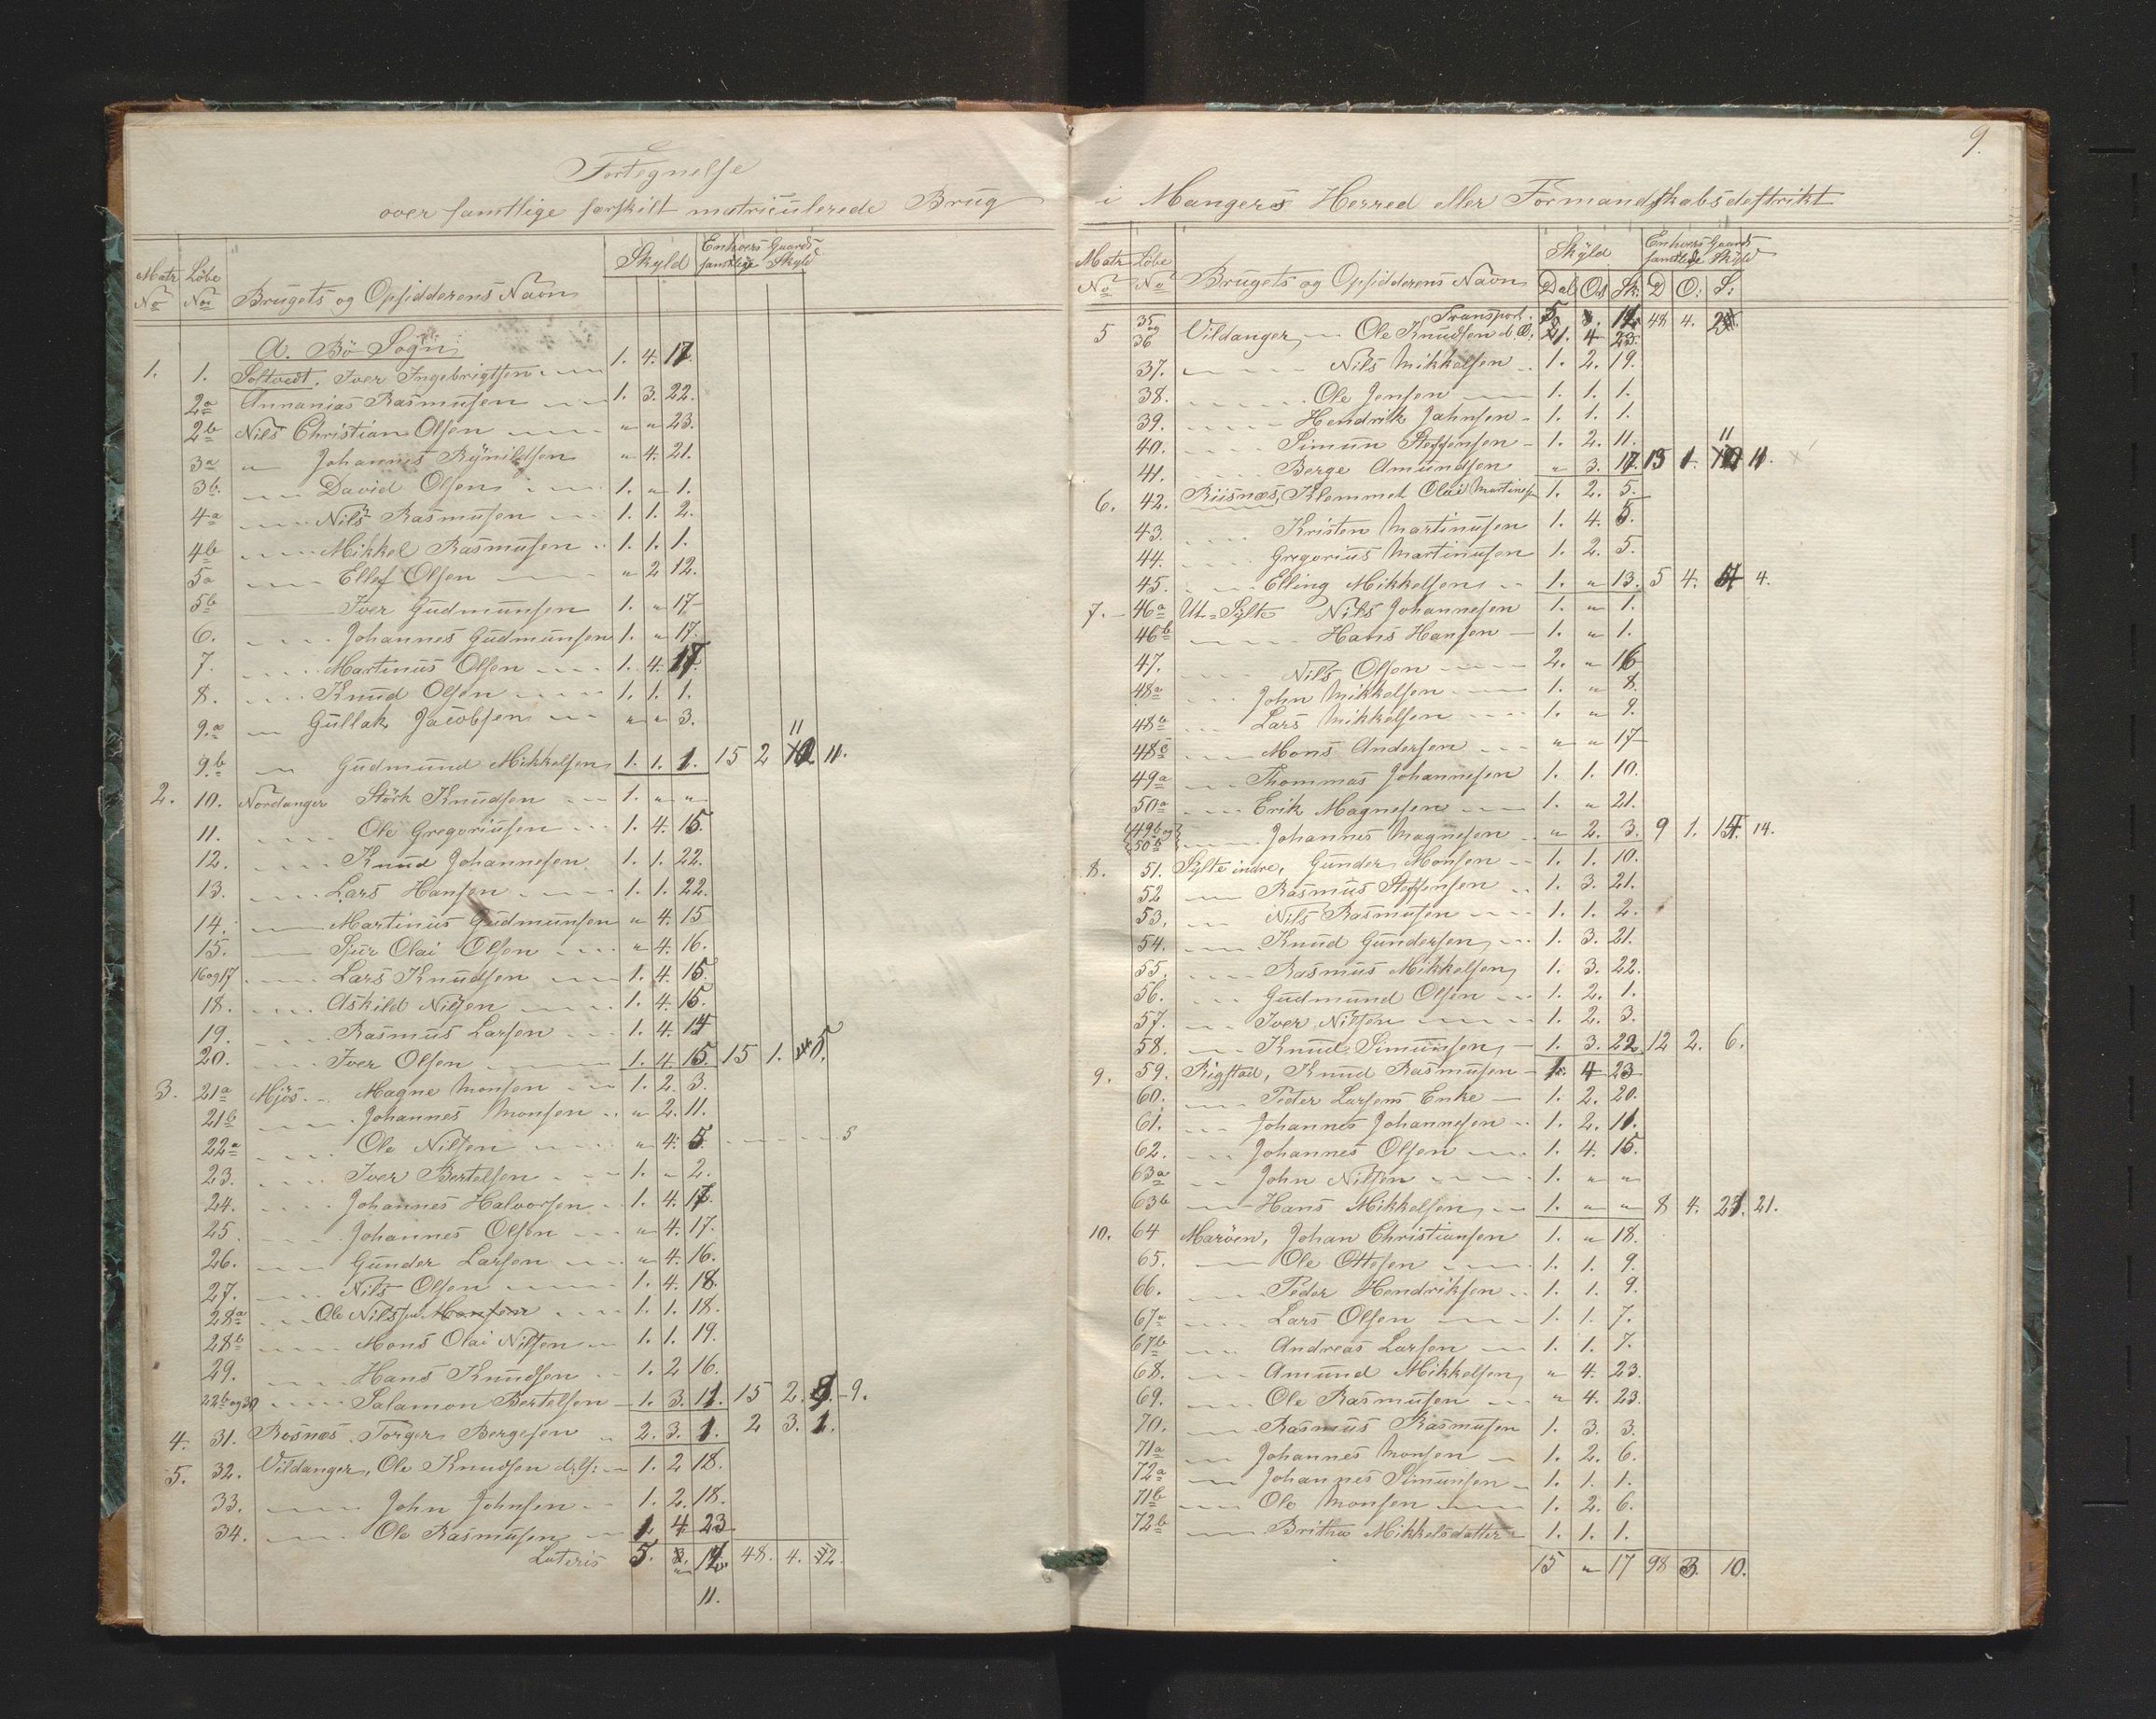 Fortegnelse
over samtlige særskilt matriculerede Brug
Matr No Løbe No Brugets og Opsidderens Navn Skyld Enhver Gaards samtlige Skyld
A. Bö Sogn
1. 1. Soltvedt. Iver Ingebrigtsen 1. 4. 17.
2a Annanias Rasmusen 1. 3. 22.
2b Nils Christian Olsen " " 23.
3a " Johannes Rynildsen " 4. 21.
3b. David Olsen 1. " 1.
4a Nils Rasmusen 1. 1. 2.
4b Mikkel Rasmusen 1. 1. 1.
5a Ellef Olsen " 2 12.
5b Iver Gudmunsen 1. " 17
6. Johannes Gudmunsen 1. " 17.
7. Martinus Olsen 1. 4. 17.
8. Knud Olsen 1. 1. 1.
9.a Gullak Jacobsen " " 3.
9.b Gudmund Mikkelsen 1. 1. 1. 15 2 11 11.
2. 10. Nordanger Störk Knudsen 1. " "
11. Ole Gregoriusen 1. 4. 15.
12. Knud Johannesen 1. 1. 22.
13. Lars Hansen 1. 1. 22.
14. Martinus Gudmunsen " 4. 15
15. Sjur Olai Olsen " 4. 16.
16og17. Lars Knudsen 1. 4. 15.
18. Askild Nilsen 1. 4. 15.
19. Rasmus Larsen 1. 4. 14
20. Iver Olsen 1. 4. 15. 15 1. 5.
3. 21a Mjös Magne Monsen 1. 2. 3.
21b Johannes Monsen " 2. 11.
22a Ole Nilsen " 4. 5 5
23. Iver Bertelsen 1. " 2.
24. Johannes Halvorsen 1. 4. 17.
25. Johannes Olsen " 4. 17.
26. Gunder Larsen " 4. 16.
27. Nils Olsen 1. 4. 18.
28a Ole Nilssen Monsen 1. 1. 18.
28b Mons Olai Nilsen 1. 1. 19.
29. Hans Knudsen 1. 2 16.
22b og 30 Salamon Bertelsen 1. 3. 11. 15 2. 9. 9.
4. 31. Rosnæs. Torger Bergesen 2. 3. 1. 2 3. 1.
5. 32. Vildanger, Ole Knudsen 1. 2 18.
33. John Johnsen 1. 2. 18.
34. Ole Rasmusen 1. 4. 23
Lateris 5. 3. 12. 48. 4. 12.
" 11.
9.
i Mangers Herred eller Formandskabsdestrikt
Matr No Løbe No Brugets og Opsidderens Navn Skyld Enhvers Gaards samtlige Skyld
Dal Ort Sk: D O: S:
Transport. 5 48 4.
5 35 og 36 Vildanger, Ole Knudsen 1. 4 23.
37. Nils Mikkelsen 1. 2. 19.
38. Ole Jensen 1. 1. 1.
39. Hendrik Jahnsen 1. 1. 1.
40. Simun Steffensen 1. 2. 11.
41. Berge Amundsen " 3. 17. 13 1. 11 11. x
6. 42. Riisnæs, Klemmet Olai Martinusen 1. 2. 5.
43. Kristen Martinusen 1. 4. 5.
44. Gregorius Martinusen 1. 2. 5.
45. Elling Mikkelsen 1. " 13. 5 4. 4 4.
7. 46a Ut-Sylte Nils Johannesen 1. " 1.
46b Hans Hansen 1. " 1.
47. Nils Olsen 2. " 16
48a John Mikkelsen 1. " 8.
48b Lars Mikkelsen 1. " 9.
48c Mons Andersen " " 17
49a Thommas Johannesen 1. 1. 10.
50a Erik Magnesen 1. " 21.
49b og 50b Johannes Magnesen " 2. 3. 9 1. 14. 14.
8. 51. Sylte indre, Gunder Monsen 1. 1. 10.
52 Rasmus Steffensen 1. 3. 21.
53. Nils Rasmusen 1. 1. 2.
54. Knud Gundersen 1. 3. 21.
55. Rasmus Mikkelsen 1. 3. 22.
56. Gudmund Olsen 1. 2. 1.
57. Iver Nilsen 1. 2. 3.
58. Knud Simunsen 1. 3. 22. 12 2. 6.
9. 59. Rigstad, Knud Rasmusen 1. 4 23
60. Peder Larsens Enke 1. 2. 20.
61. Johannes Johannesen 1. 2. 11.
62. Johannes Olsen 1. 4. 15.
63a John Nilsen 1. " "
63b Hans Mikkelsen 1. " " 8 4. 21. 21.
10. 64 Maröen, Johan Christiansen 1. " 18.
65. Ole Ottesen 1. 1. 9.
66. Peder Hendriksen 1. 1. 9.
67a Lars Olsen 1. 1. 7.
67b Andreas Larsen 1. 1. 7.
68. Amund Mikkelsen " 4. 23.
69. Ole Rasmusen " 4. 23.
70. Rasmus Rasmusen 1. 3. 3.
71a Johannes Monsen 1. 2. 6.
72a Johannes Simunsen 1. 1. 1.
71b Ole Monsen 1. 2. 6.
72b Britha Mikkelsdatter 1. 1. 1.
15 " 17 98 3. 10.